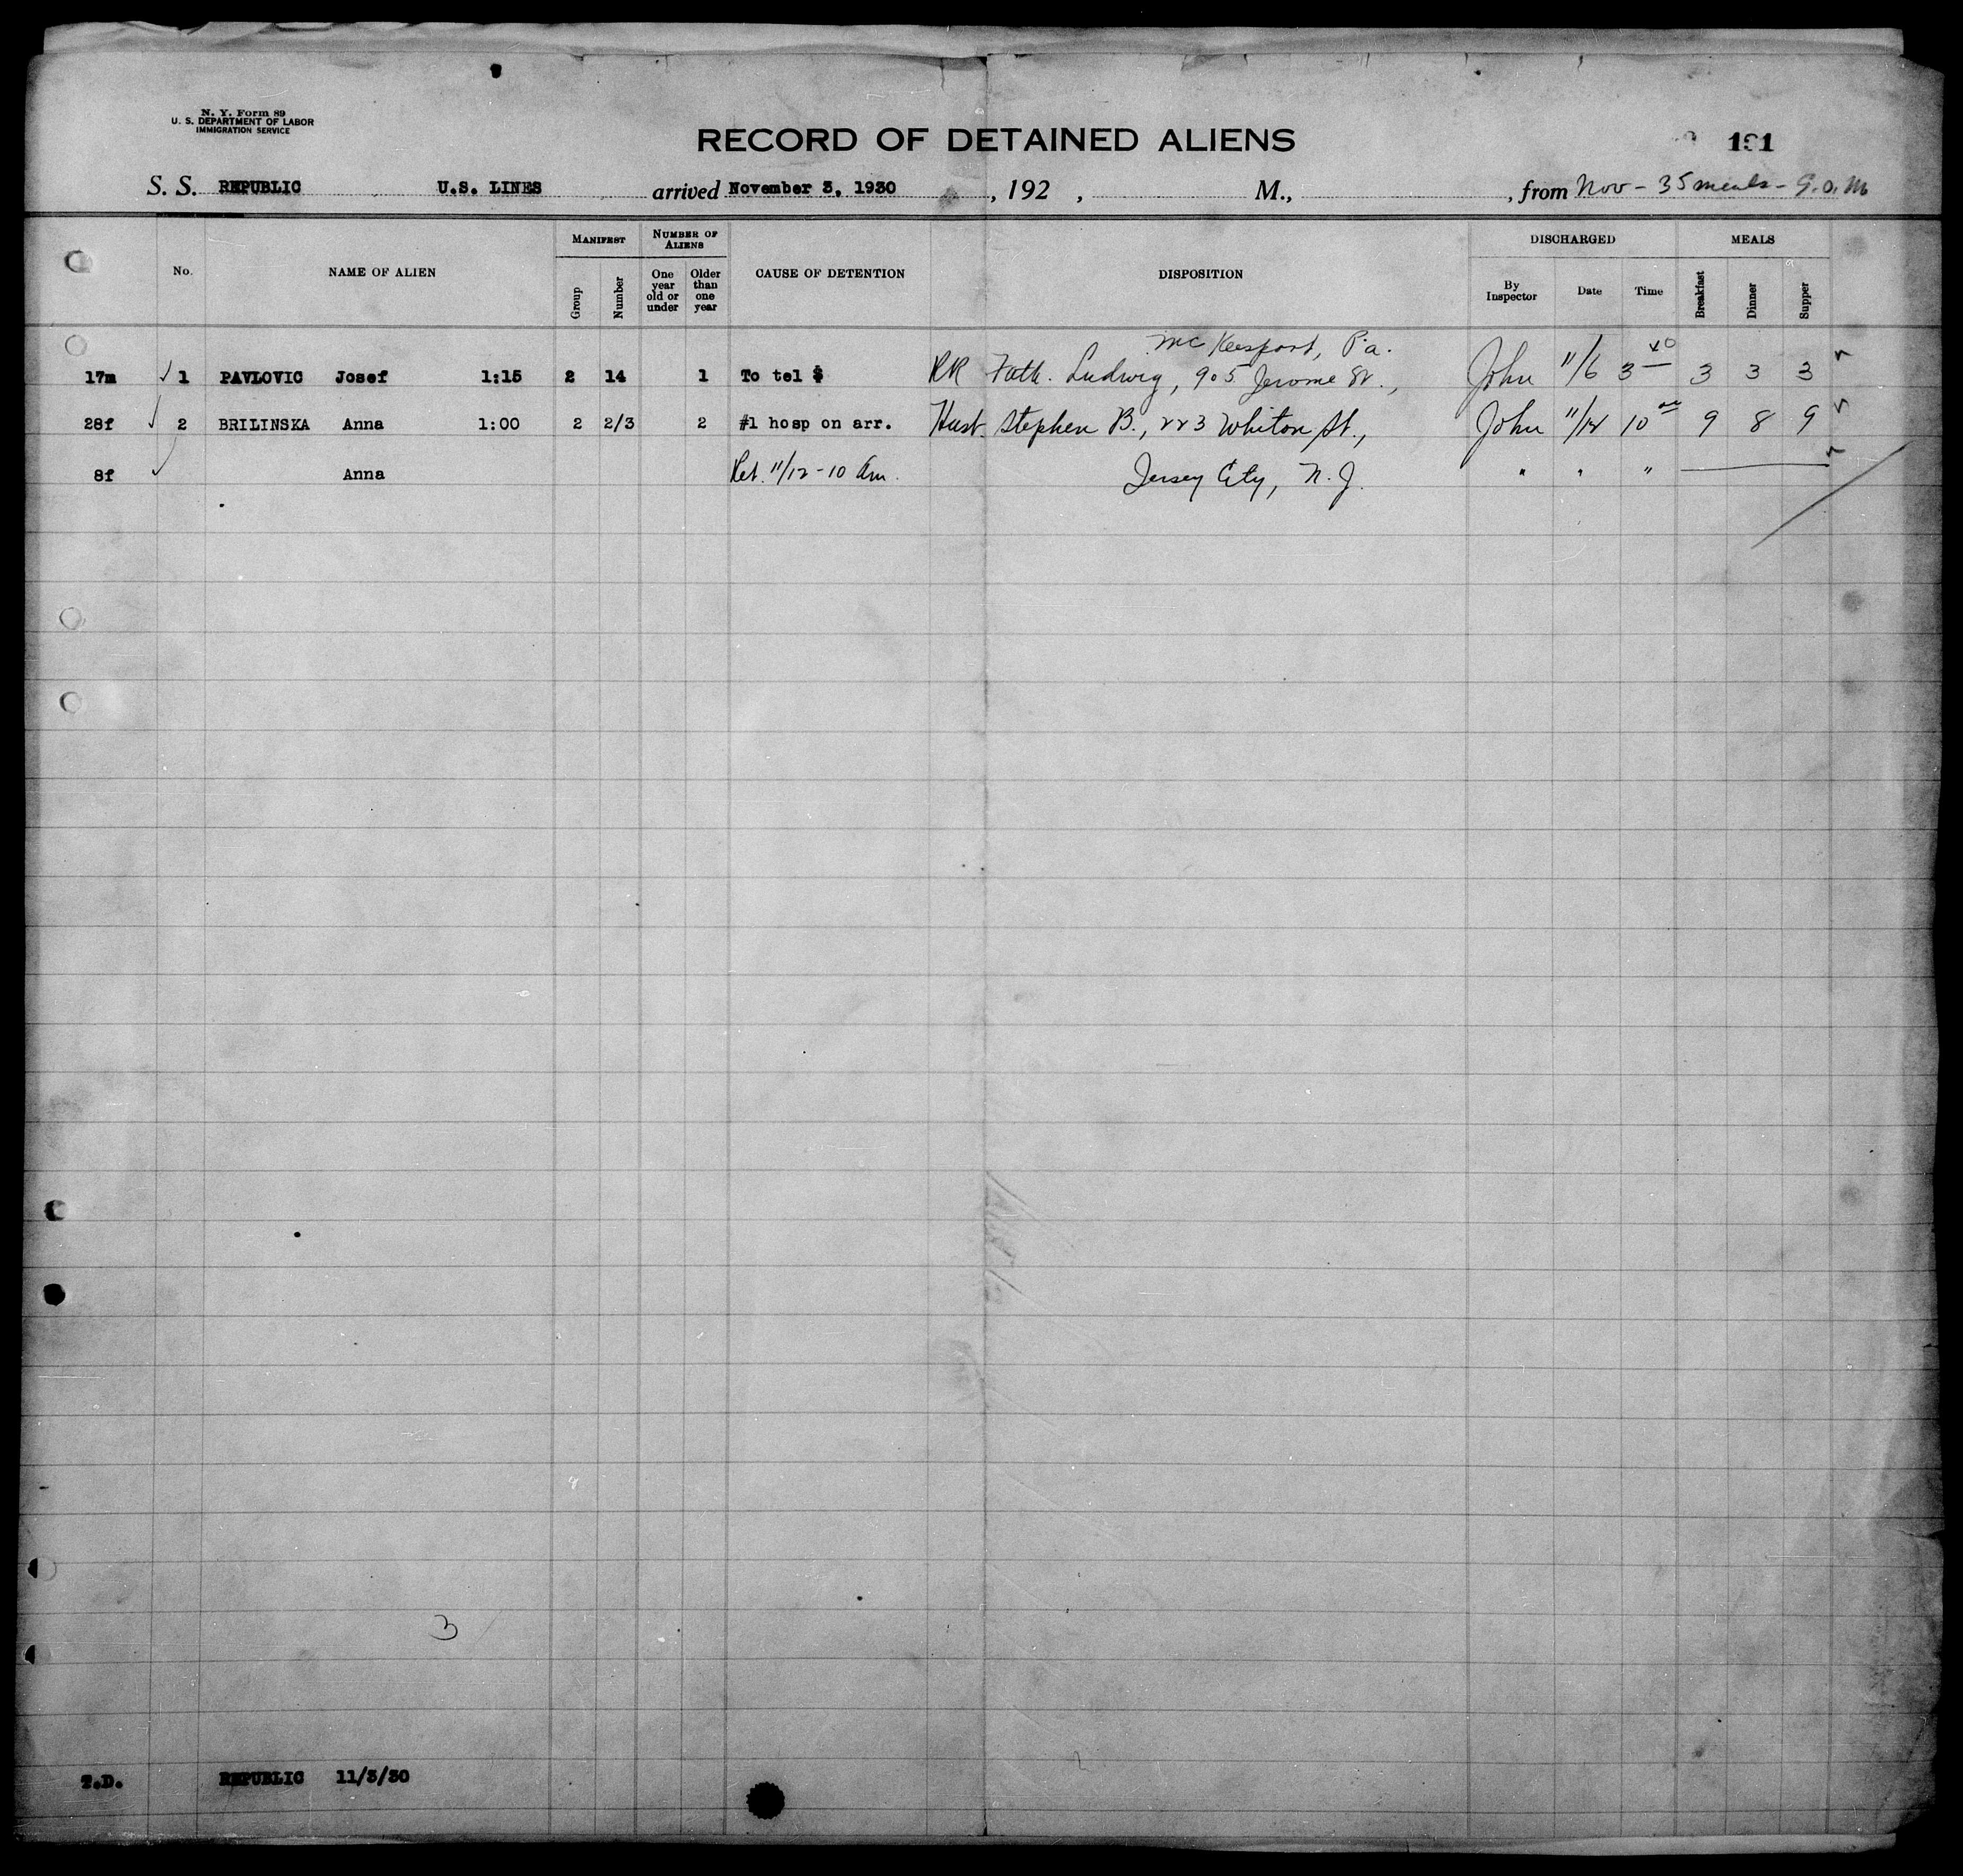 N. Y. Form 89
U. S. DEPARTMENT OF LABOR
IMMIGRATION SERVICE
RECORD OF DETAINED ALIENS
191
S. S. REPUBLIC U.S. LINES arrived November 3, 1930, 192 , M., , from Nov - 35 meals - G.O.M
No. NAME OF ALIEN MANIFEST Group Number NUMBER OF ALIENS One year old or under Older than one year CAUSE OF DETENTION DISPOSITION DISCHARGED By Inspector Date Time MEALS Breakfast Dinner Supper
McKeesport, Pa.
17m 1 PAVLOVIC Josef 1:15 2 14 1 To tel $ RR Fath. Ludwig, 905 Jerome St., John 11/6 3 3 3 3
28f 2 BRILINSKA Anna 1:00 2 2/3 2 #1 hosp on arr. Husb. Stephen B., 223 Whiton St., John 11/12 10 9 8 9
8f Anna Ret. 11/12 - 10 Am. Jersey City, N. J. " " "
3
T.D. REPUBLIC 11/3/30